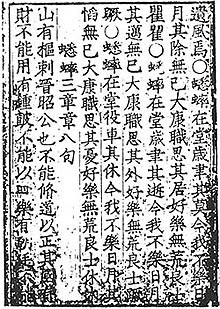 遺風焉○蟋蟀在堂歲聿其莫今我不樂日
月其除無已大康職思其居好樂無荒良士
瞿瞿○蟋蟀在堂歲聿其逝今我不樂日月
其邁無已大康職思其外好樂無荒良士蹶
蹶○蟋蟀在堂役車其休今我不樂日月其
慆無已大康職思其憂好樂無荒良士休休
蟋蟀三章章八句
山有樞刺晉昭公也不能脩道以正其國有
財不能用有鍾鼓不能以樂有朝